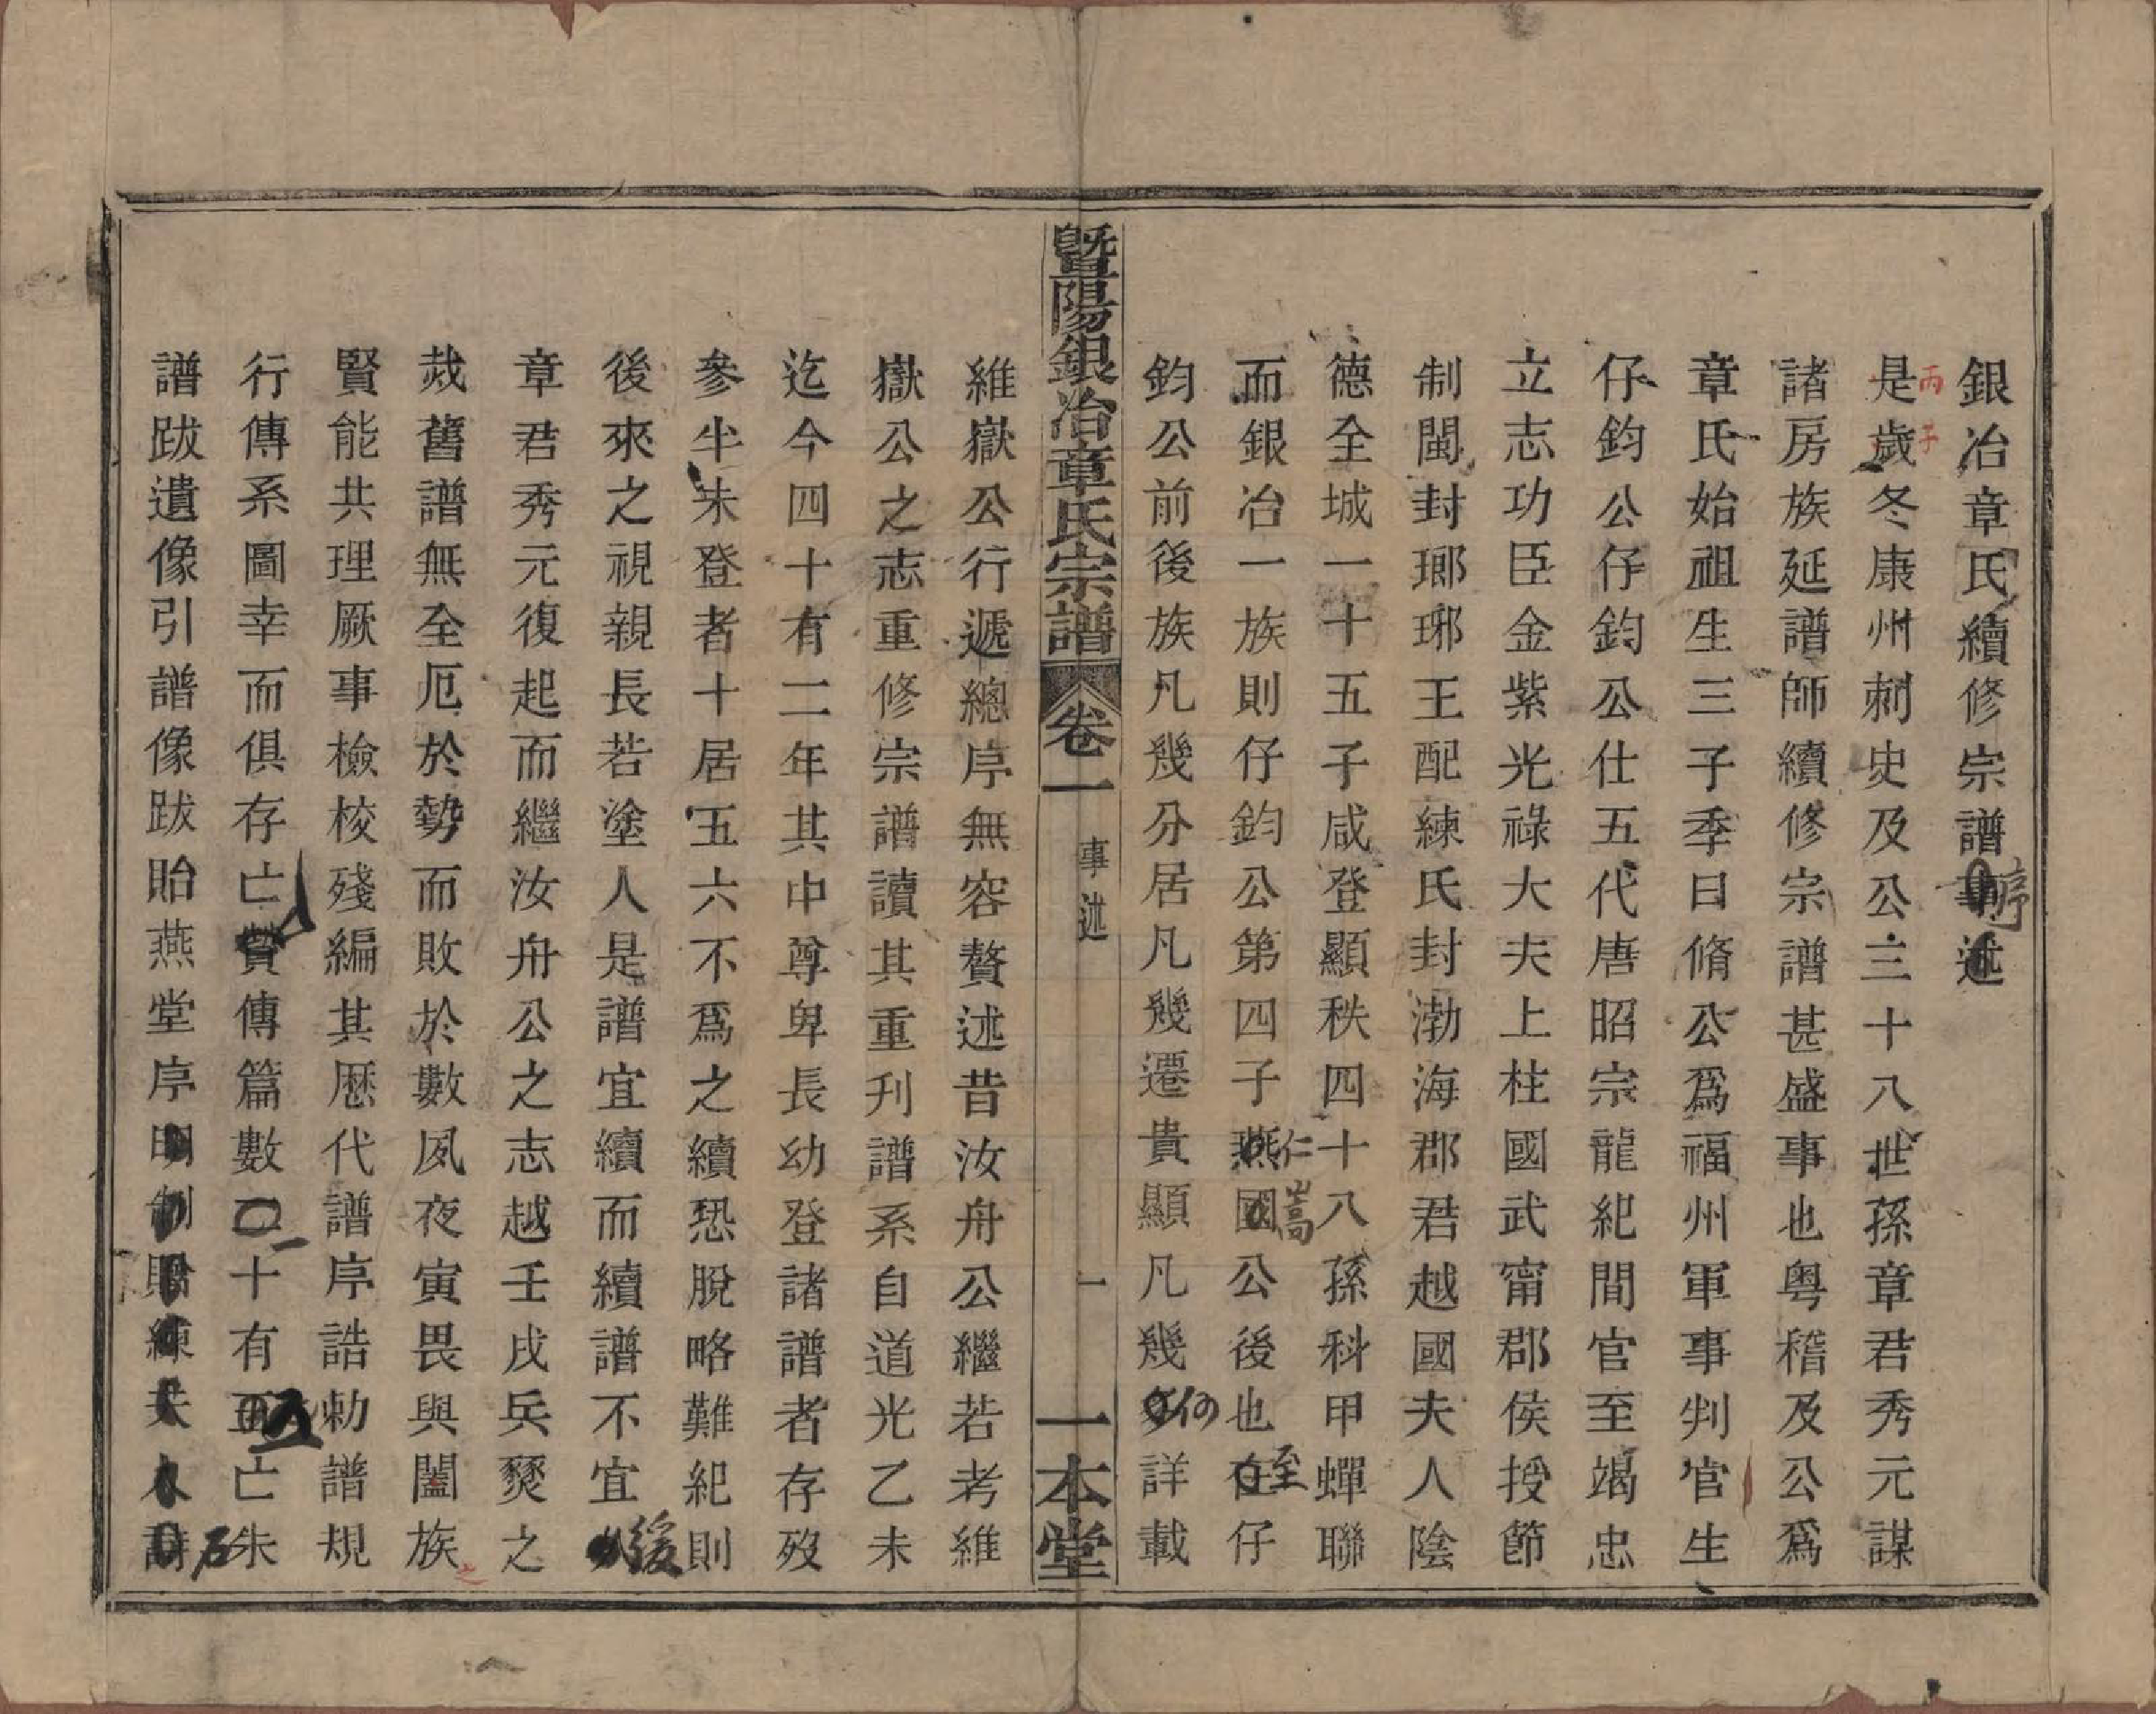 銀冶章氏續修宗譜事述
序
丙子
是歲冬康州刺史及公三十八世孫章君秀元謀
諸房族延譜師續修宗譜甚盛事也粤稽及公爲
章氏始祖生三子季曰脩公爲福州軍事判官生
仔鈞公仔鈞公仕五代唐昭宗龍紀間官至竭忠
立志功臣金紫光祿大夫上柱國武甯郡侯授節
制閩封瑯琊王配練氏封渤海郡君越國夫人陰
德全城一十五子咸登顯秩四十八孫科甲蟬聯
而銀冶一族則仔鈞公第四子燕國公後也在仔
仁嵩
至
鈞公前後族凡幾分居凡幾遷貴顯凡幾詳載
何
暨陽銀冶章氏宗譜 卷一 事述 一 一本堂
維嶽公行遞總序無容贅述昔汝舟公繼若考維
嶽公之志重修宗譜讀其重刊譜系自道光乙未
迄今四十有二年其中尊卑長幼登諸譜者存歿
參半未登者十居五六不爲之續恐脫略難紀則
後來之視親長若塗人是譜宜續而續譜不宜
緩
章君秀元復起而繼汝舟公之志越壬戌兵燹之
烖舊譜無全厄於勢而敗於數夙夜寅畏與闔族
之
賢能共理厥事檢校殘編其歷代譜序誥勅譜規
行傳系圖幸而俱存亡贊傳篇數二十有五亡朱
一
五
石
譜跋遺像引譜像跋貽燕堂序明制贈練夫人詩